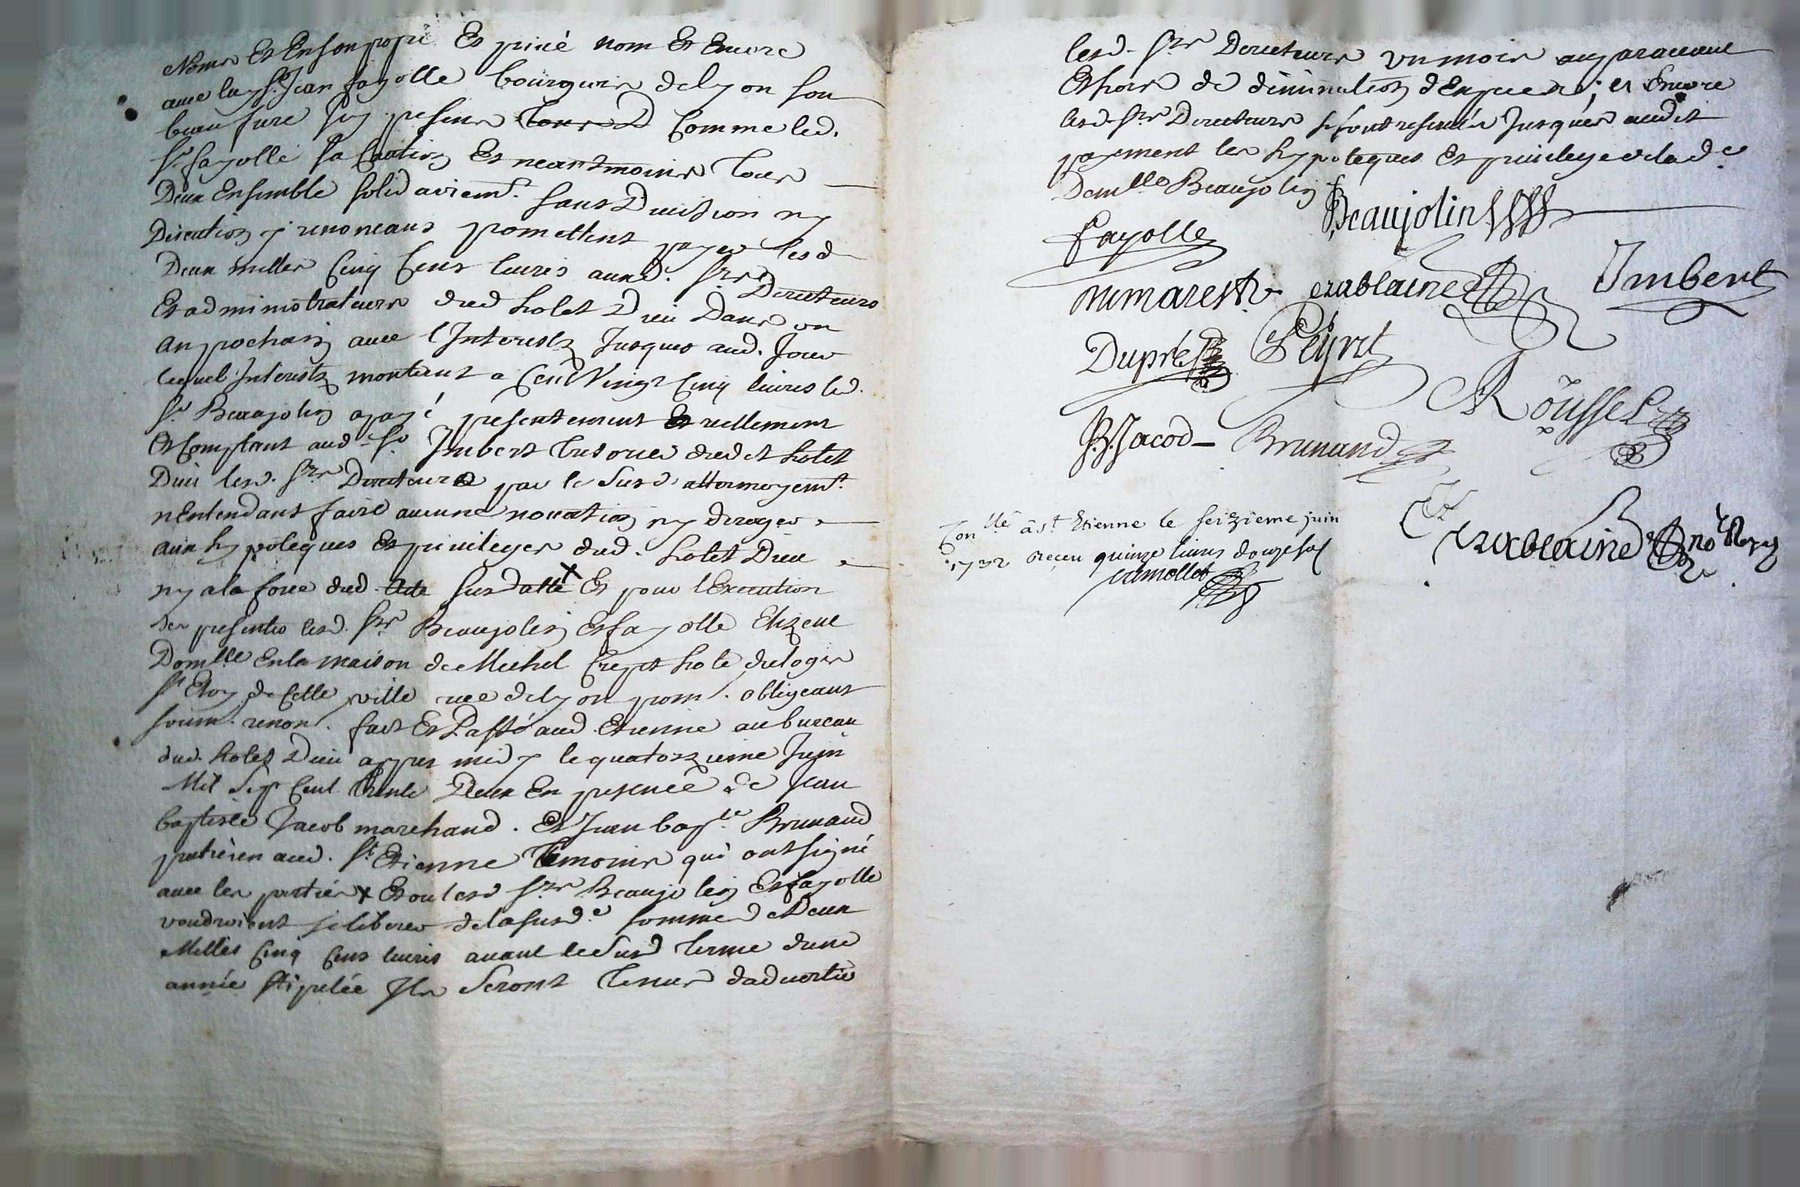 Noms Et En son propre Et privé nom Et Encore
avec luy Sr. Jean fayolle bourgeois de lyon son
beau frere icy present Comme led.
Sr. fayolle sa Caution Et neantmoins Tous
Deux Ensemble solidairemt. sans Division ny
Discution y renonceans promettent payer lesd
Deux milles Cinq Cens livres ausd. Srs. Directeurs
Et administrateurs dud hotel Dieu Dans un
an prochain avec l'Interests Jusques aud. Jour
lequel Interests montent a Cent Vingt Cinq livres led.
Sr. Beaujolin a payé presentement Et reellement
Et Comptant aud Sr. Imbert Tresorier dudit hotel
Dieu lesd. Srs Directeurs par le Susd attermoyemt.
n'Entendans faire aucune novation ny deroger
aux hypoteques Et privileges dud. hotel Dieu
ny a la force dud. Acte Susdatté x Et pour l'Execution
des presentes lesd. Srs Beaujolin Et fayolle Elizent
Domille En la maison de Michel Crepet hote du logis
St Eloy de Cette ville rue de lyon prom. obligeans
soum. renon. fait Et Passé aud Etienne au bureau
dud. hotel Dieu apres midy le quatorzieme Juin
Mil Sept Cent Trente Deux En presence de Jean
baptiste Jacob marchand. Et Jean bapte. Brunand
praticien aud. St Etienne Temoins qui ont signé
avec les parties x Et ou lesd Srs Beaujolin Et fayolle
voudroient se liberer de la susde. somme de Deux
Milles Cinq Cens livres avant le Susd Terme d'une
année stipulée Ils Seront Tenus d'advertir
lesd. Srs Directeurs un mois auparavant
Et hors de diminution d'Especes; et Encore
lesd. Srs Directeurs se sont reservés Jusques audit
payement les hypoteques Et privileges de lade
Demlle Beaujolin
Beaujolin
fayolle
nimarest erablaine Imbert
Dupré Peyret
Rousset
JB. Jacod Brunand
Conllé à St Etienne le seizieme juin
1732 Receu quinze livres douze sol
Erablaine no.re Roya